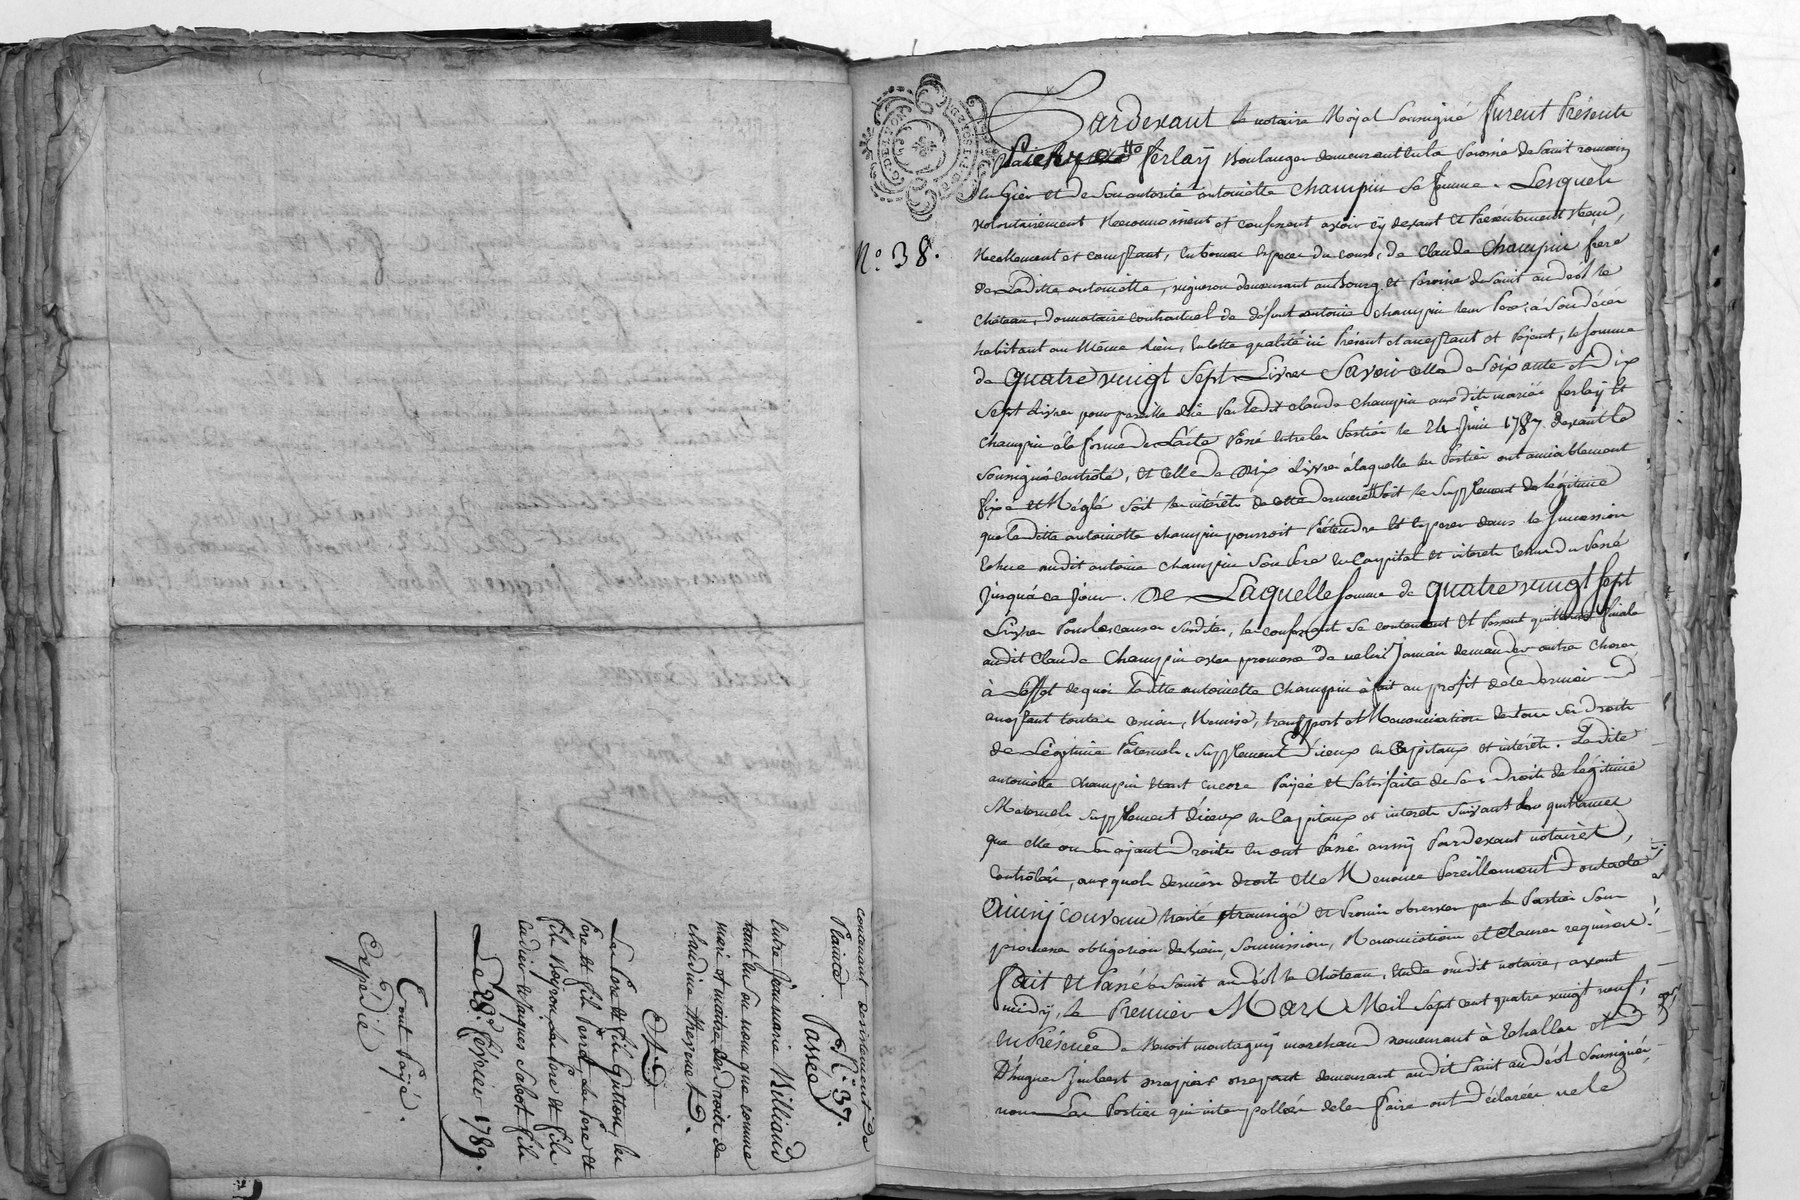 contenant desistement de
Plainte N.º 37.
Passée
entre Jeanmarie Billiaud
tant en son nom que comme
mari et maitre des droits de
claudine thevenet
Et
Les Pere et fils Gutton, les
Pere et fils
fils Boiron, les Pere et fils
et Jaques Sabot fils
Le 28.e Février 1789.
Tout Payé.
Expédié
N.º 38.
Pardevant le notaire Royal Soussigné furent Présents
ferlaÿ Boulanger demeurant en la Paroisse de Saint romain
en Gier et de Son autorité antoinette Champin Sa femme. Lesquels
volontairement Reconnoissent et confessent avoir cÿ devant et Présentement Reçu,
Réellement et comptant, en bonnes Especes du cours, de Claude Champin frere
de Laditte antoinette, vigneron demeurant au Bourg et Paroisse de Saint andéol le
Château, Donnataire contractuel de défunt antoine champin leur Pere, à Son décès
habitant au Même Lieu, en cette qualité ici Présent et acceptant et Payant, la Somme
de quatre vingt Sept Livres Savoir celle de Soixante et Dix
Sept Livres pour pareille düe Par Ledit Claude Champin aux dits mariés ferlaÿ et
champin à la forme de L'acte Passé entre les Parties le 24 Juin 1787 devant le
Soussigné contrôlé, et celle de Dix Livres à laquelle les Parties ont amiablement
fixé et Réglé Soit les intérêts de cette derniere Soit le Supplement de légitime
que Laditte antoinette champin pourroit Prétendre et Esperer dans la Succession
Echue audit antoine Champin Son Pere en Capital et interets Echus du Passé
Jusqu'à ce jour. De Laquelle Somme de quatre vingt Sept
Livres Pour les causes Susdites, les confessants Se contentent et Passent quittance finale
audit Claude Champin avec promesse de ne lui Jamais demander autre Chose,
à L'effet de quoi Laditte antoinette Champin a fait au profit de ce dernier
acceptant toutes cession, Remise, transport et Renonciation de tous Ses Droits
de Légitime Paternels, Supplement D'iceux en Capitaux et intérêts. Ladite
antoinette champin Etant encore Payée et Satisfaite de Ses Droits de Légitime
Maternels Supplement d'iceux en Capitaux et interets Suivant les quittances
que elle ou Les ayant Droits en ont Passé aussÿ Pardevant notaires,
Contrôlées, auxquels derniers droits elle Renonce Pareillement Dont acte
Ainsÿ convenu traité transigé et Promis observer par les Parties Sous
promesse obligation de biens, Soumission, Renonciation et Clauses requises.
fait et Passé à Saint andéol le Château, Etude dudit notaire, avant
midÿ, le Premier Mars Mil Sept cent quatre vingt neuf,
En Présence de Benoit montagnÿ marchand demeurant à Echallas et
D'hugues Jmbert demeurant audit Saint andéol Soussignés,
non Les Parties qui interpellées de le faire ont Déclarées ne le